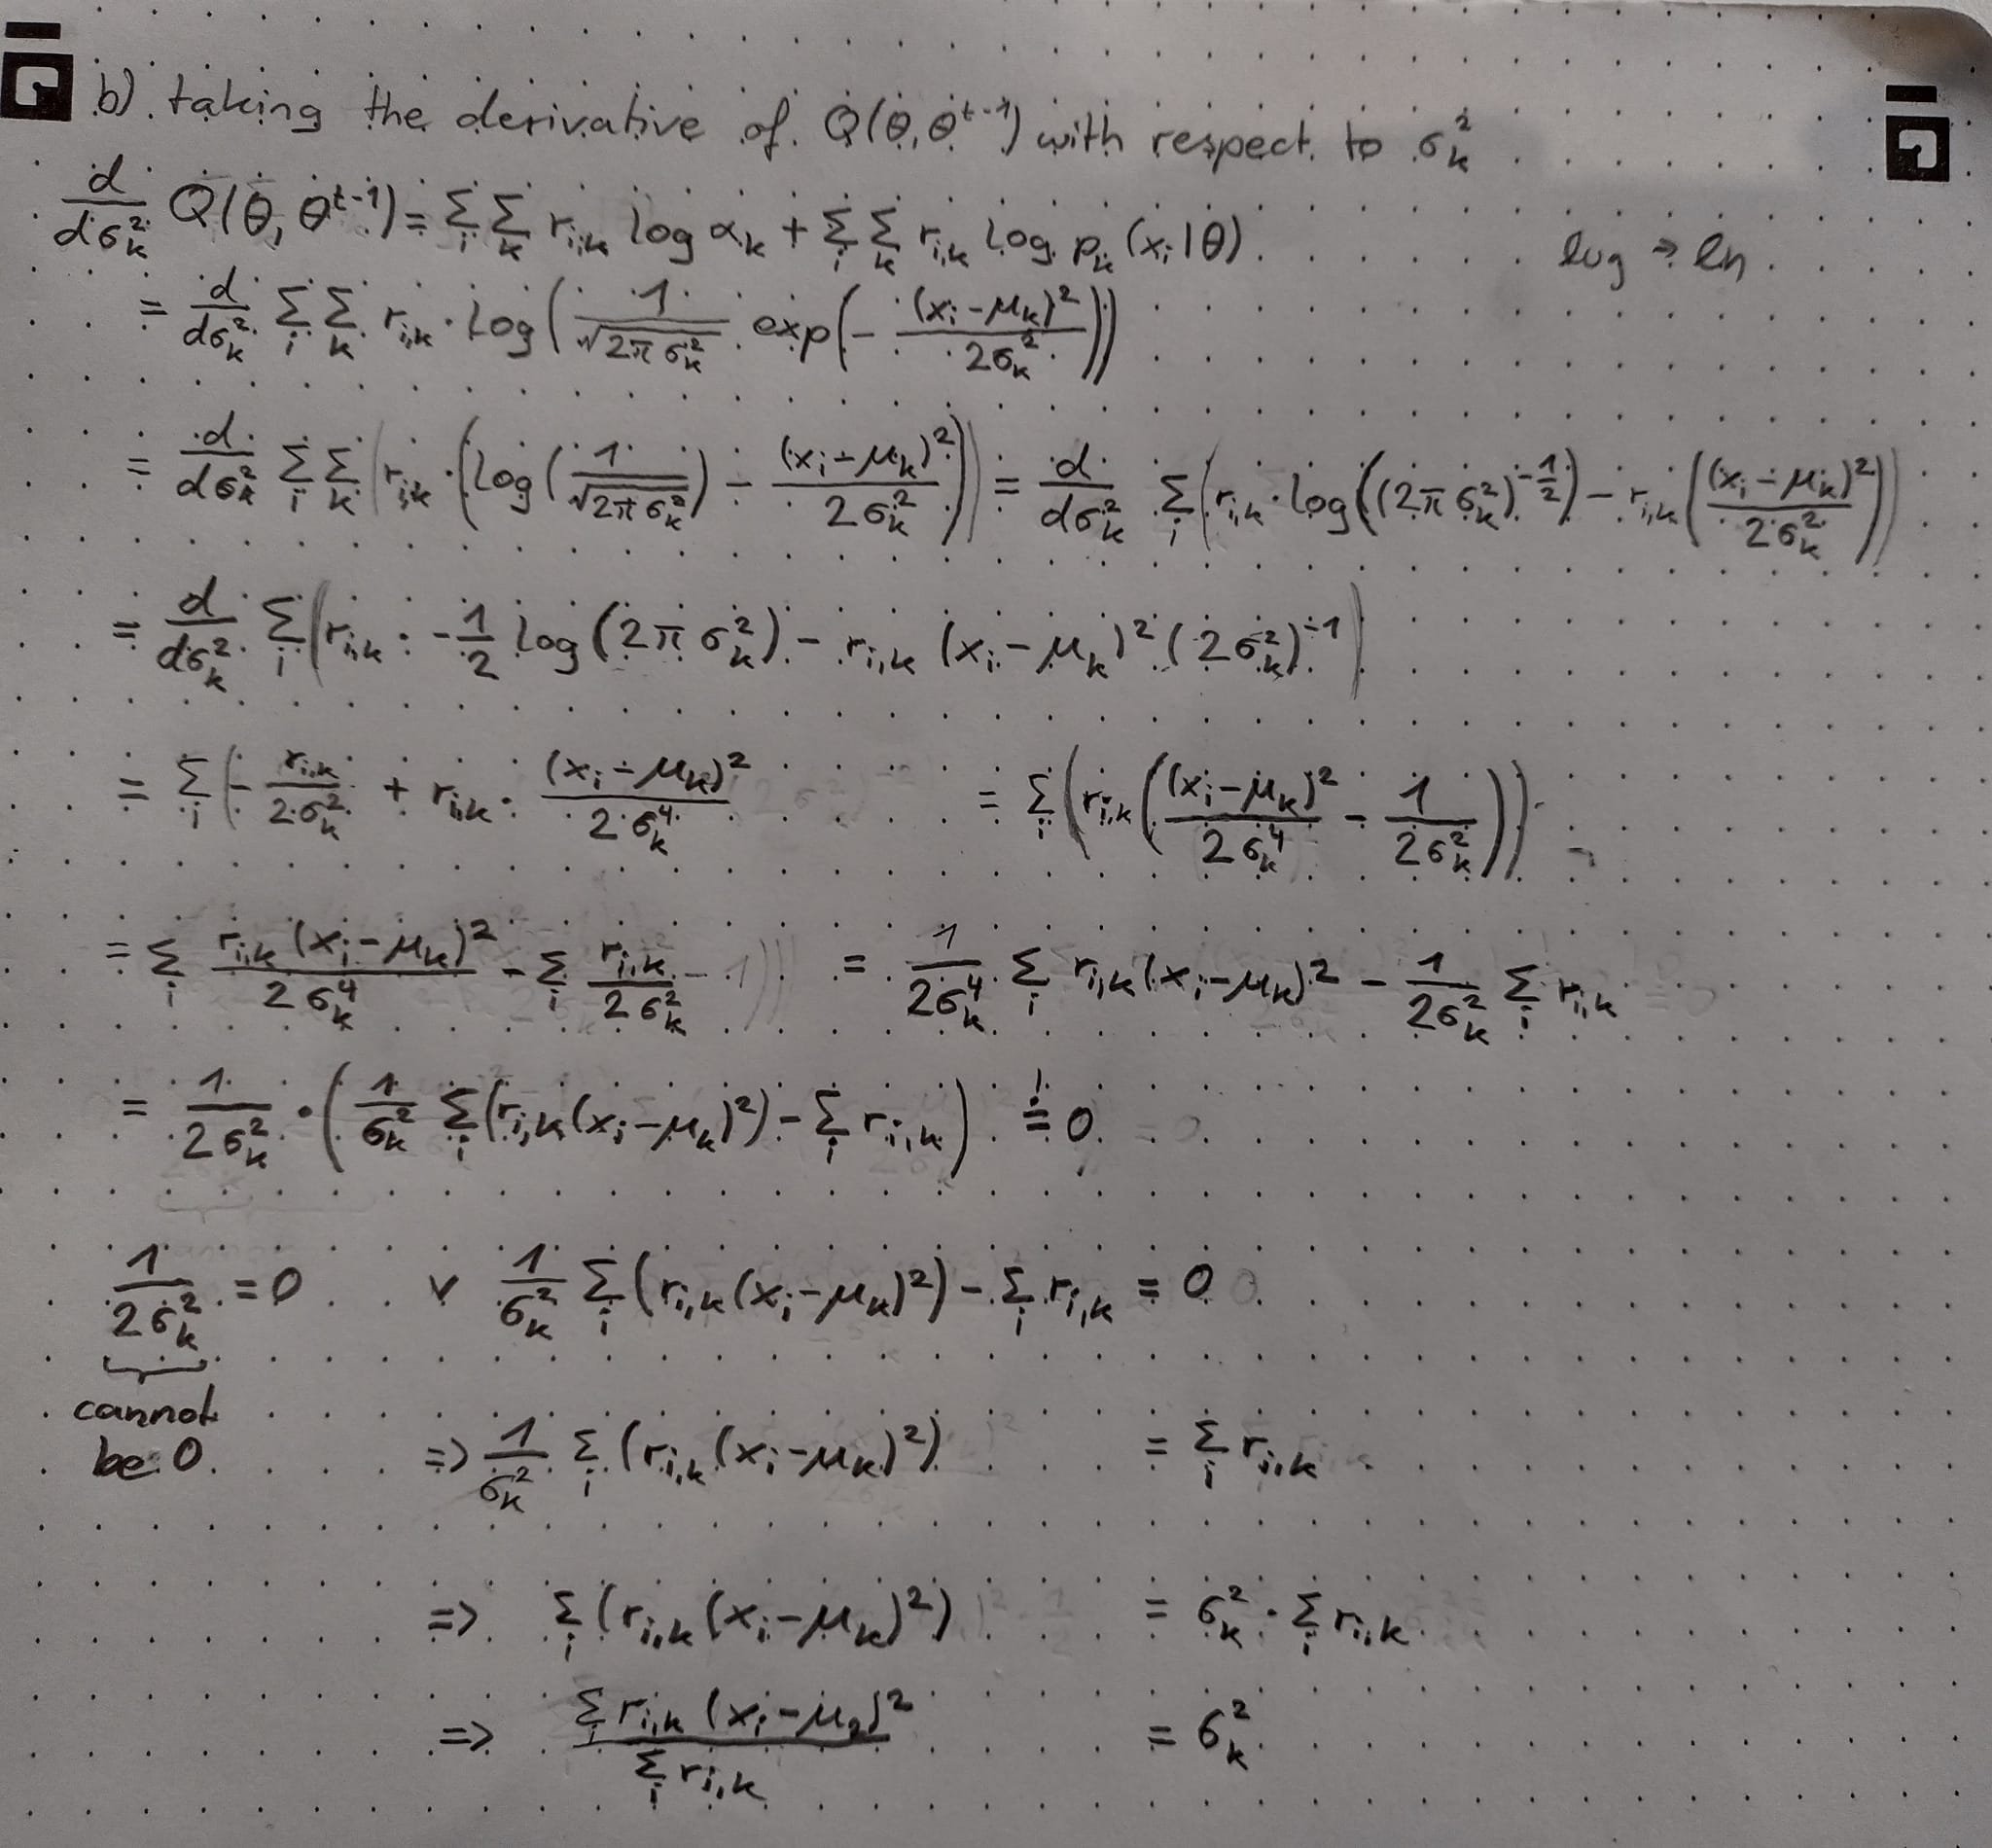 b) taking the derivative of Q(θ, θ^{t-1}) with respect to σ_k^2
d/dσ_k^2 Q(θ, θ^{t-1}) = Σ_i Σ_k r_{i,k} log α_k + Σ_i Σ_k r_{i,k} log p_k (x_i|θ) log → ln
= d/dσ_k^2 Σ_i Σ_k r_{i,k} · log(1/√(2πσ_k^2) exp(-(x_i-μ_k)^2/2σ_k^2))
= d/dσ_k^2 Σ_i Σ_k (r_{i,k} · (log(1/√(2πσ_k^2)) - (x_i-μ_k)^2/2σ_k^2)) = d/dσ_k^2 Σ_i (r_{i,k} · log((2πσ_k^2)^{-1/2}) - r_{i,k} ((x_i-μ_k)^2/2σ_k^2))
= d/dσ_k^2 Σ_i (r_{i,k} · -1/2 log(2πσ_k^2) - r_{i,k} (x_i-μ_k)^2 (2σ_k^2)^{-1})
= Σ_i (- r_{i,k}/2σ_k^2 + r_{i,k} · (x_i-μ_k)^2/2σ_k^4 = Σ_i (r_{i,k} ((x_i-μ_k)^2/2σ_k^4 - 1/2σ_k^2))
= Σ_i r_{i,k}(x_i-μ_k)^2/2σ_k^4 - Σ_i r_{i,k}/2σ_k^2 = 1/2σ_k^4 Σ_i r_{i,k}(x_i-μ_k)^2 - 1/2σ_k^2 Σ_i r_{i,k}
= 1/2σ_k^2 · (1/σ_k^2 Σ_i (r_{i,k}(x_i-μ_k)^2) - Σ_i r_{i,k}) =! 0
1/2σ_k^2 = 0 ∨ 1/σ_k^2 Σ_i (r_{i,k}(x_i-μ_k)^2) - Σ_i r_{i,k} = 0
cannot
be 0
=> 1/σ_k^2 Σ_i (r_{i,k}(x_i-μ_k)^2) = Σ_i r_{i,k}
=> Σ_i (r_{i,k}(x_i-μ_k)^2) = σ_k^2 · Σ_i r_{i,k}
=> Σ_i r_{i,k}(x_i-μ_2)^2/Σ_i r_{i,k} = σ_k^2